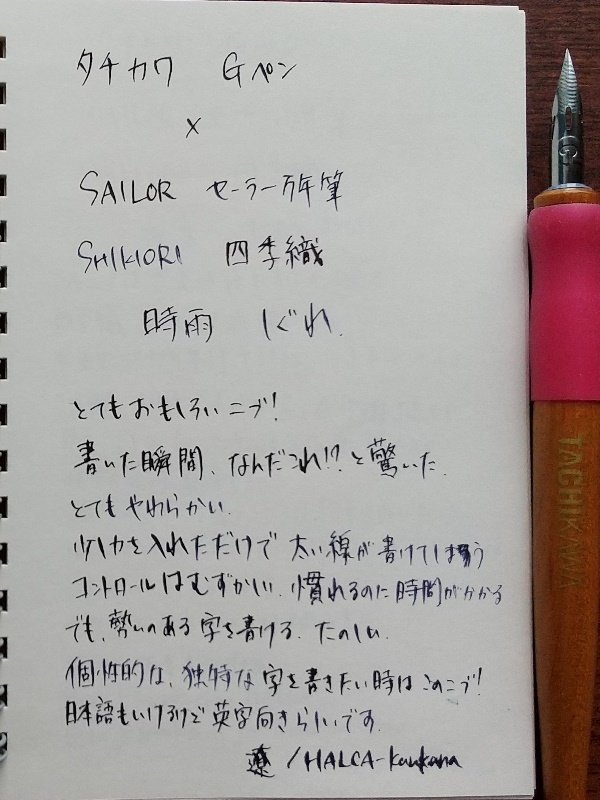 タチカワ Gペン
×
SAILOR セーラー万年筆
SHIKIORI 四季織
時雨 しぐれ.
とてもおもしろいニブ!
書いた瞬間、なんだこれ!?と驚いた.
とてもやわらかい.
少し力を入れただけで 太い線が書けてしまう
コントロールはむずかしい. 慣れるのに時間がかかる
でも、勢いのある字を書ける. たのしい.
個性的な、独特な字を書きたい時はこのニブ!
日本語もいけるけど英字向きらしいです.
遼 /HALCA-kaukana
G
TACHIKAWA